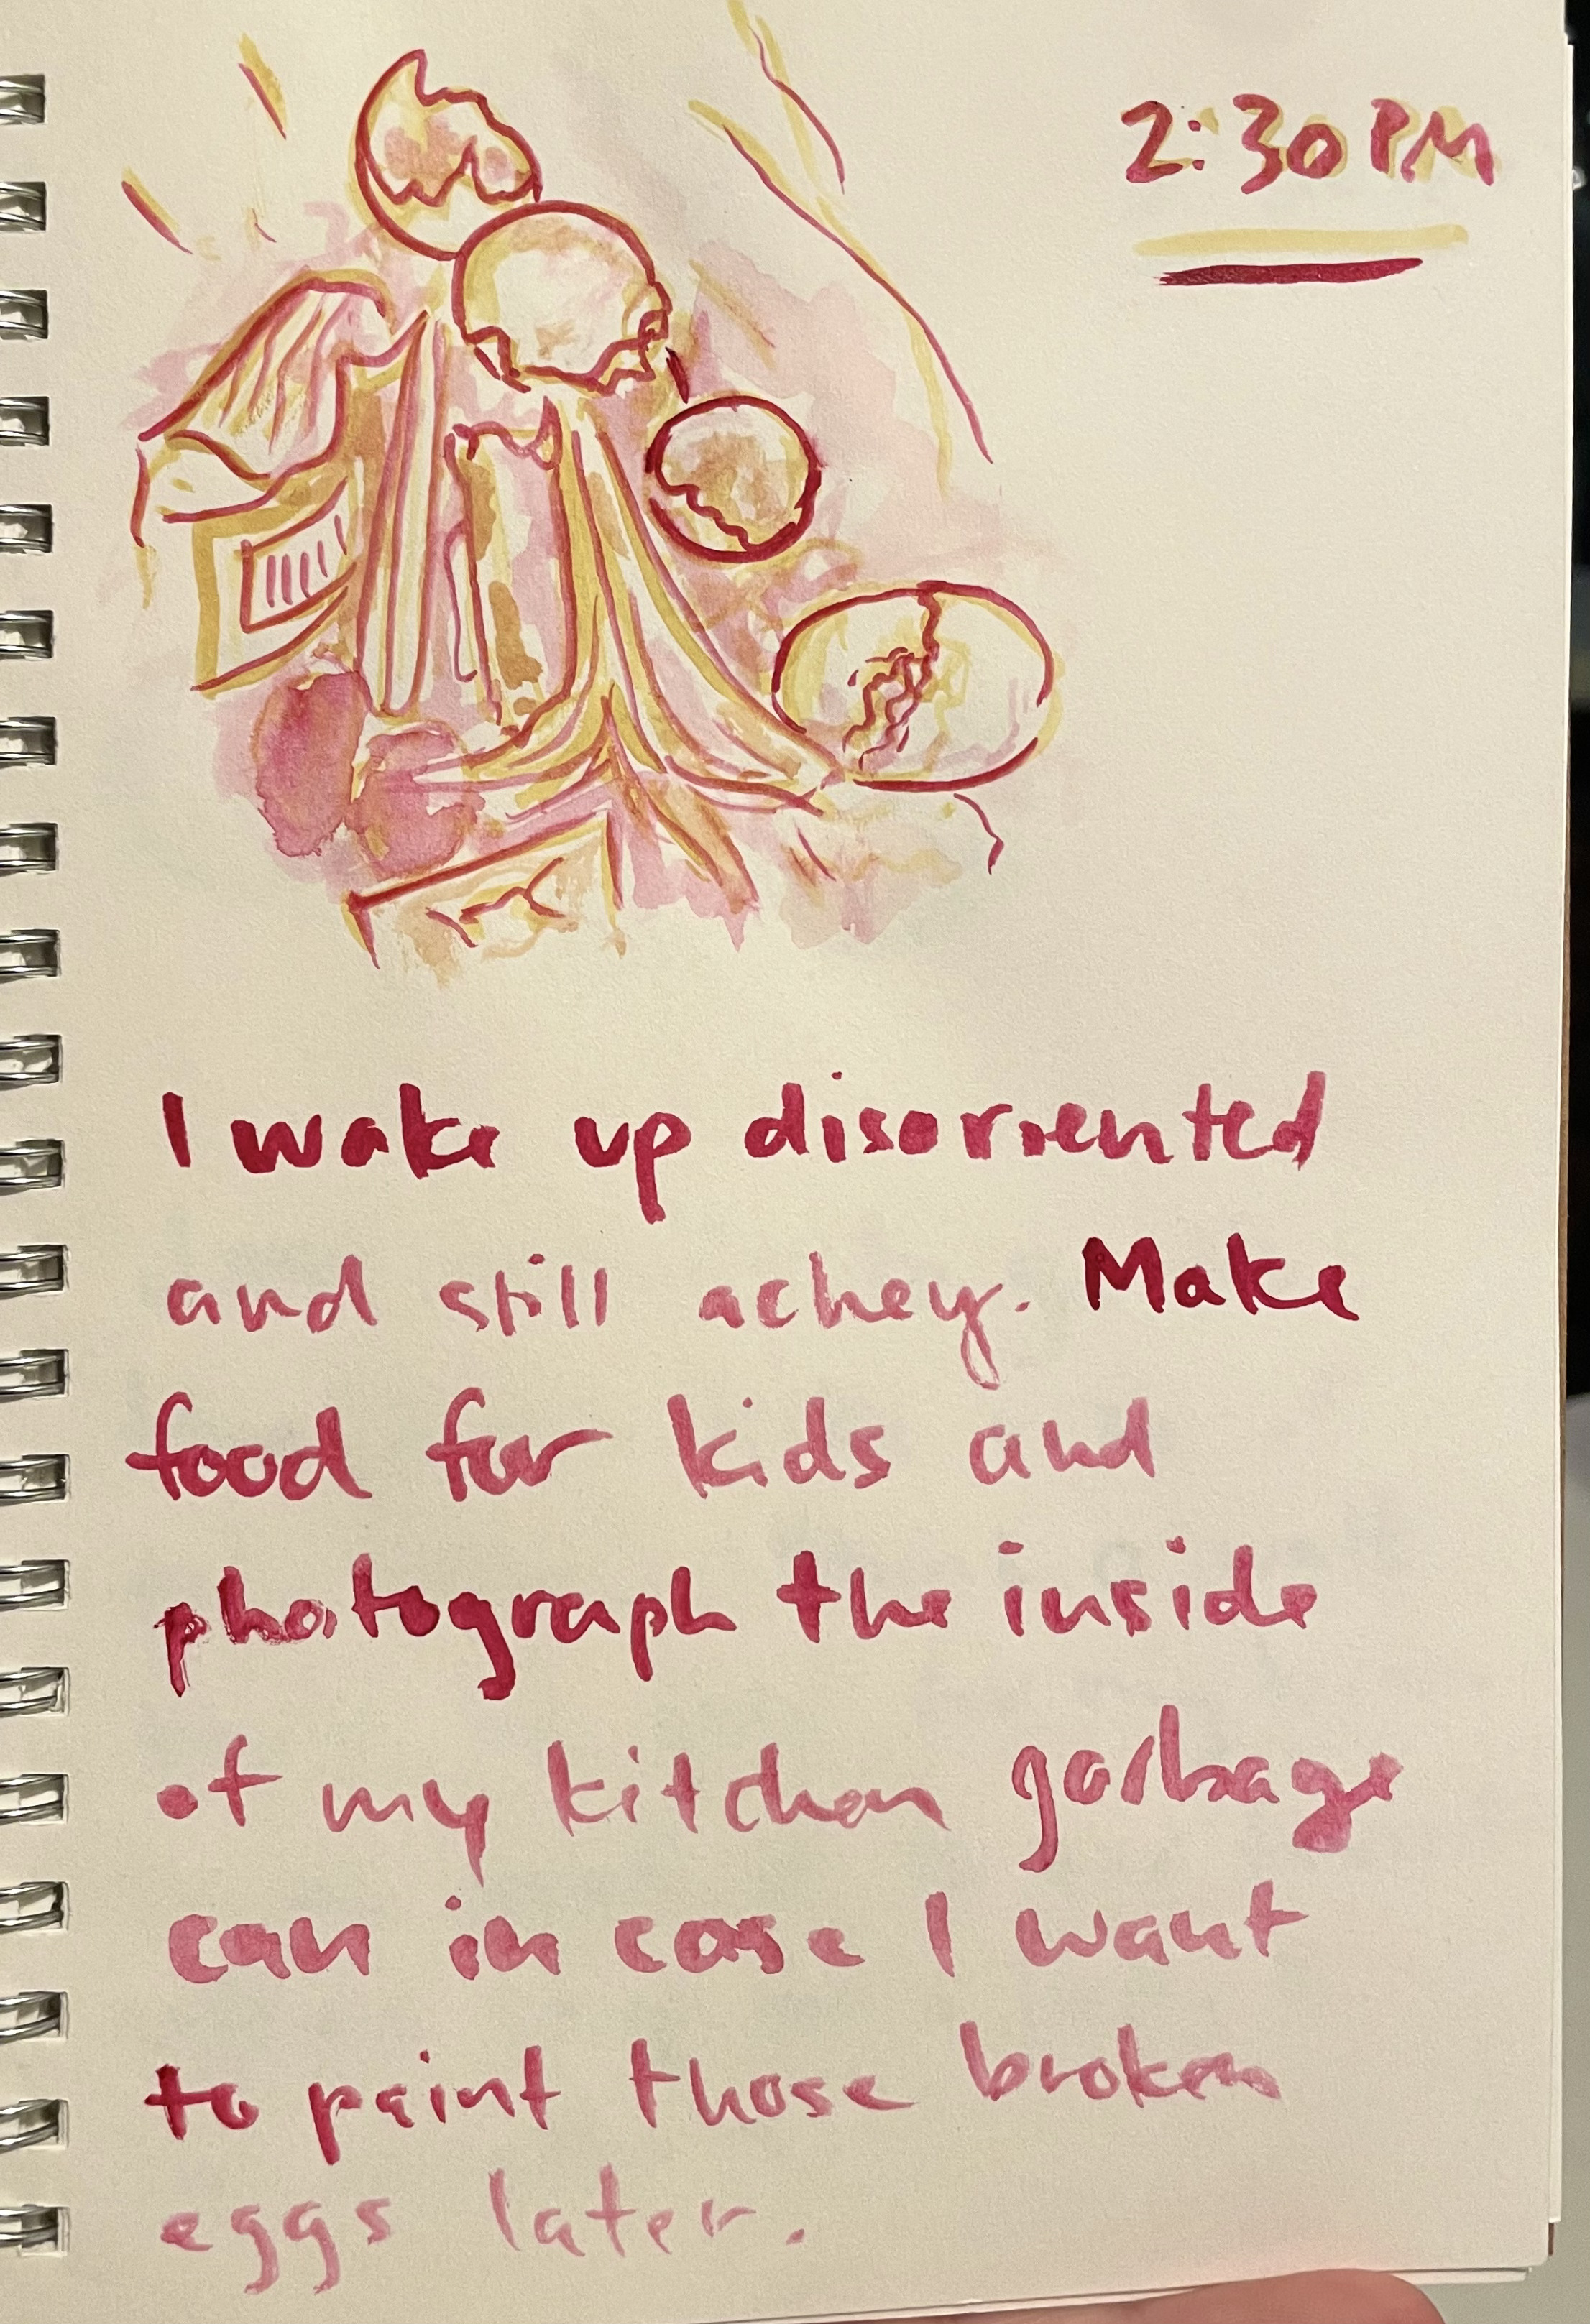 2:30 PM
I wake up disoriented
and still achey. Make
food for kids and
photograph the inside
of my kitchen garbage
can in case I want
to paint those broken
eggs later.